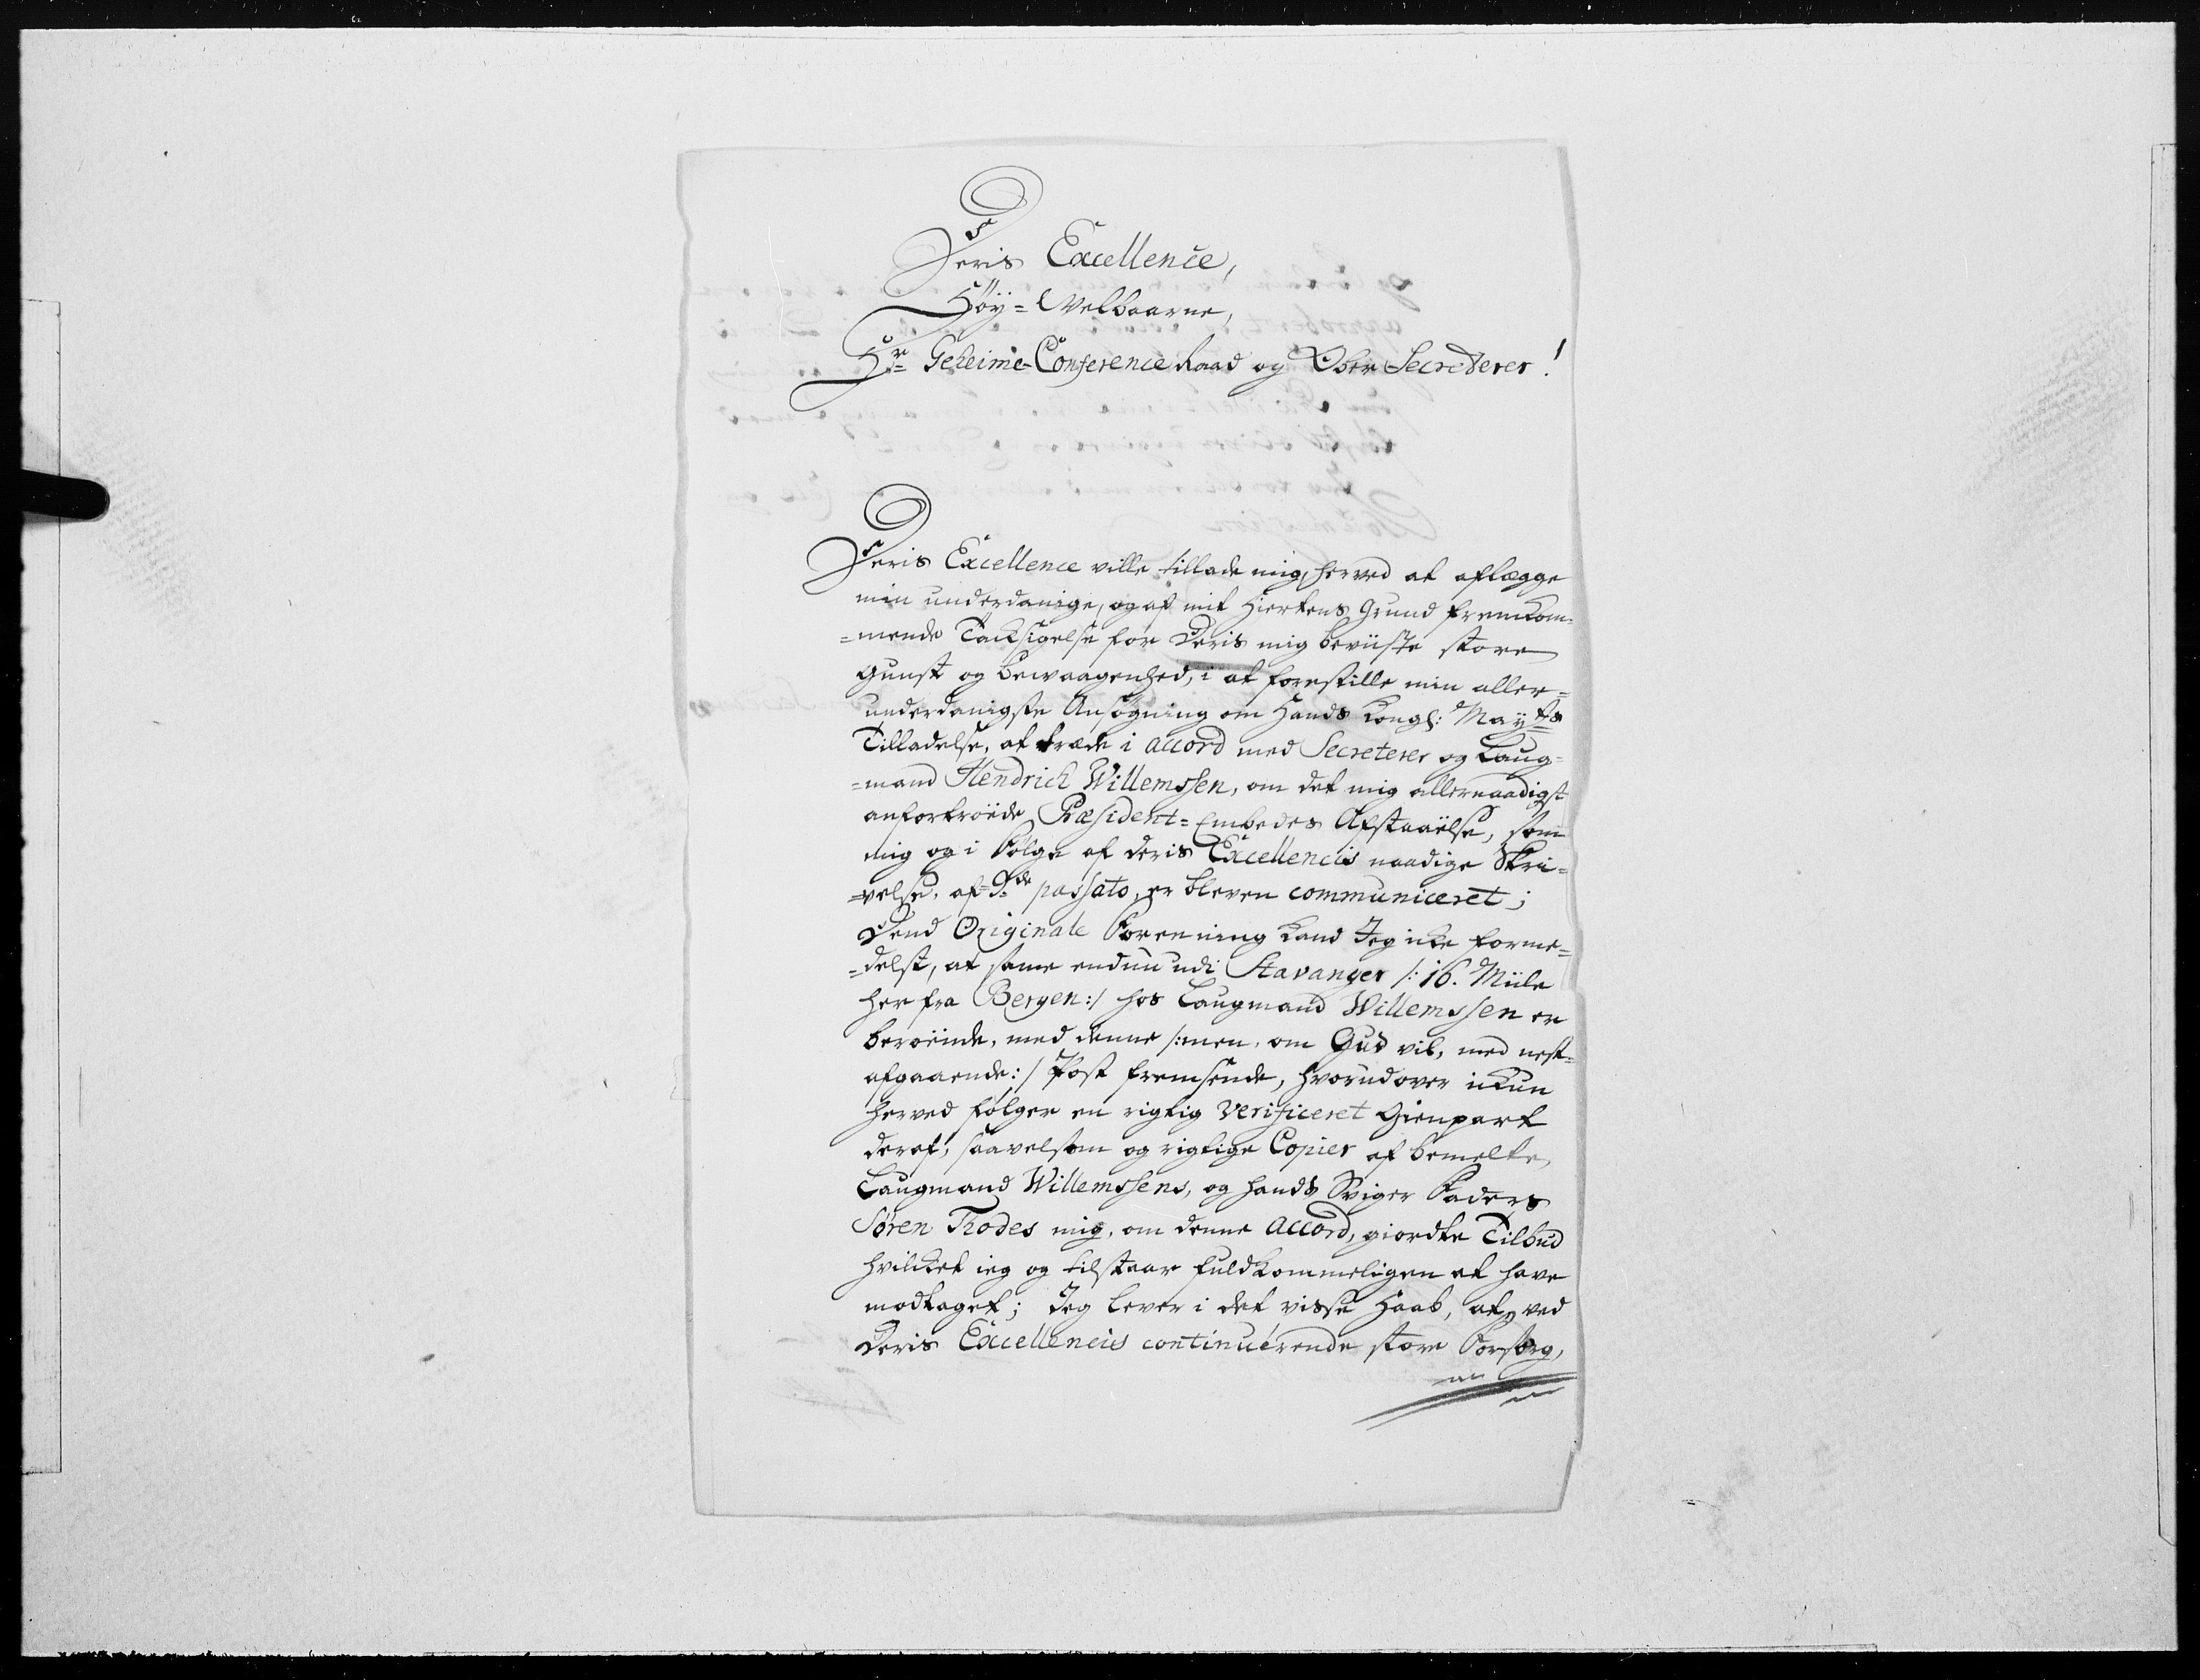 Deris Excellence,
Höÿ=Welbaarne,
Hr Geheime-Conference Raad og Ober Secreterer!
Deris Excellence ville tillade mig, herved at aflægge
min underdanige, og af mit Hiertens Grund fremkom¬
=mende Tacksigelse for Deris mig beviiste store
Gunst og bewaagenhed, i at forestille min aller=
underdanigste Ansögning om Hands Kongl: Mayts
Tilladelse, at træde i accord med Secreterer og Laug=
=mand Hendrich Willemssen, om det mig allernaadigst
anfortroëde Præsident=Embedes Afstaaëlse, som
mig og i Fölge af deris Excellencis naadige Skri=
=velse, af 9de passato, er bleven communiceret;
Dend Originale Forening kand Jeg icke forme=
=delst, at samme endnu udi Stavanger /: 16. Miile
her fra Bergen:/ hos Laugmand Willemssen er
beroënde, med denne /:men, om Gud vil, med nest=
afgaaende:/ Post fremsende, hvorudover ickun
herved fölger en rigtig verificeret Gienpart
deraf, saavelsom og rigtige Copier af bemelte,
Laugmand Willemssens, og hands Sviger Faders
Sören Thodes mig, om denne accord, giordte Tilbud
hvilcket ieg og tilstaar fuldkommeligen at have
modtaget; Jeg lever i det visse Haab, at, ved
Deris Excellencis continuérende store Forsorg,